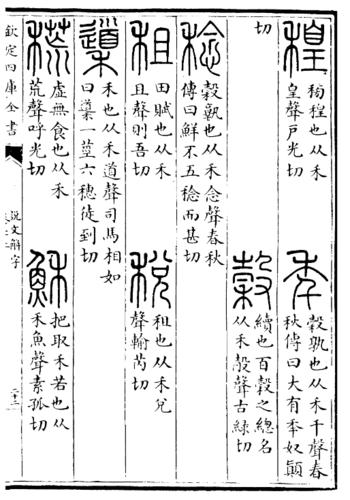 穔
穔也从禾
皇聲戶光切
秊
穀孰也从禾千聲春
秋傳曰大有秊奴顛
切
穀
續也百穀之總名
从禾㱿聲古録切
稔
穀孰也从禾念聲春秋
傳曰鮮不五稔而甚切
租
田賦也从禾
且聲則吾切
稅
租也从禾兌
聲輸芮切
䆃
禾也从禾道聲司馬相如
曰䆃一莖六穗徒到切
𥠲
虛無食也从禾
荒聲呼光切
穌
把取禾若也从
禾魚聲素孤切
欽定四庫全書
說文解字
二十三